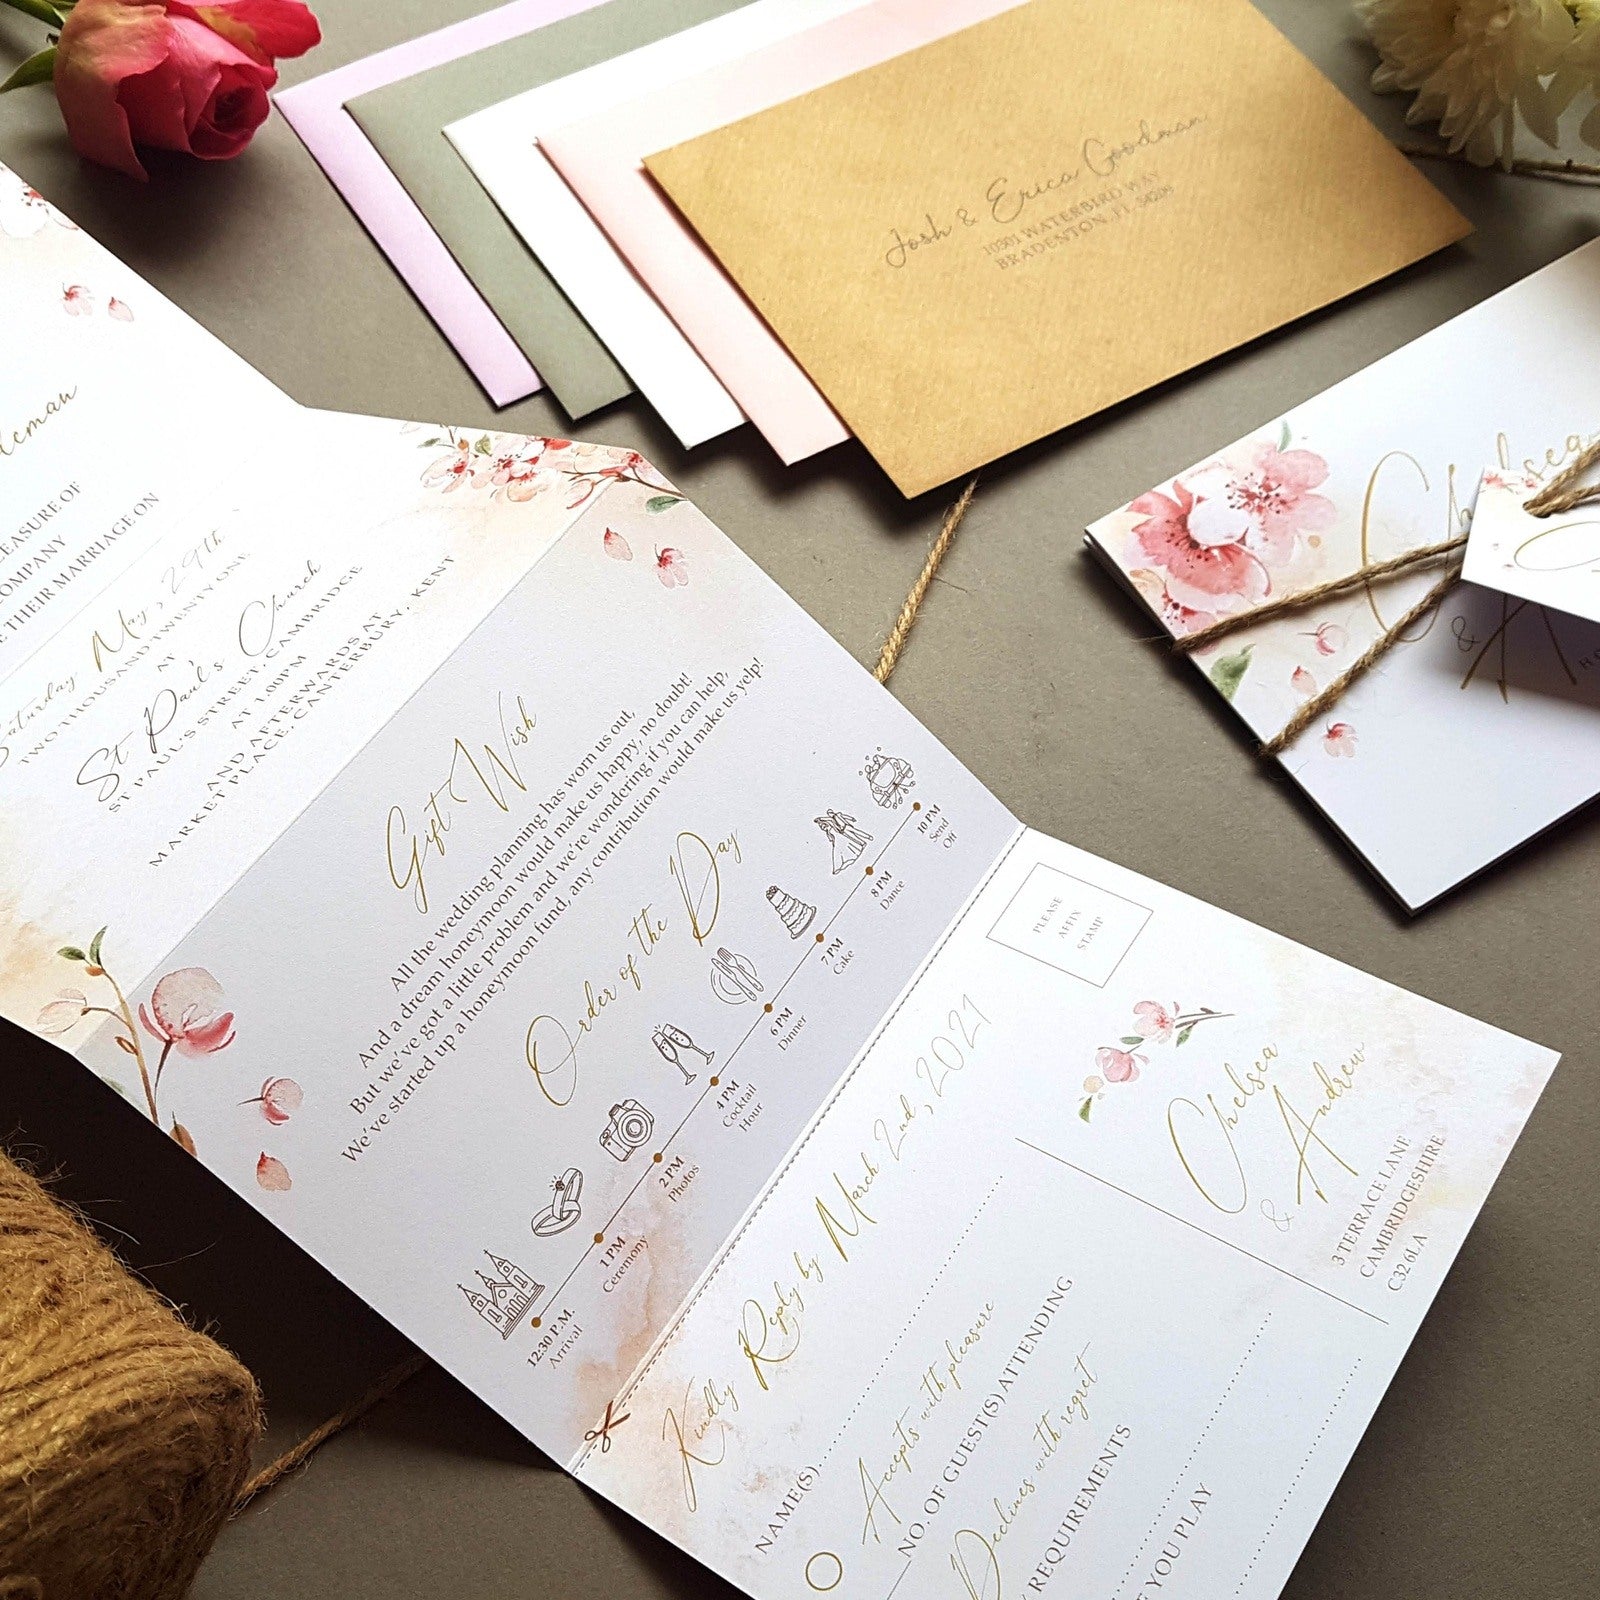 Josh & Erica Goodman
10301 WATERBIRD WAY
BRADENTON, FL 34206
Chelsea
&
MARRIAGE ON
Saturday May, 29th
TWO THOUSAND TWENTY ONE
AT
St Paul's Church
ST PAUL'S STREET, CAMBRIDGE
AT 1.00PM
AND AFTERWARDS AT
MARKET PLACE, CANTERBURY, KENT
Gift Wish
All the wedding planning has worn us out,
And a dream honeymoon would make us happy, no doubt!
But we've got a little problem and we're wondering if you can help,
We've started up a honeymoon fund, any contribution would make us yelp!
Order of the Day
12:30 P.M.
Arrival
1 PM
Ceremony
2 PM
Photos
4 PM
Cocktail
Hour
6 PM
Dinner
7 PM
Cake
8 PM
Dance
10 PM
Send
Off
PLEASE
AFFIX
STAMP
Chelsea
& Andrew
3 TERRACE LANE
CAMBRIDGESHIRE
C32 6LA
Kindly Reply by March 2nd, 2021
NAME(S)
Accepts with pleasure
NO. OF GUEST(S) ATTENDING
Declines with regret
REQUIREMENTS
YOU PLAY